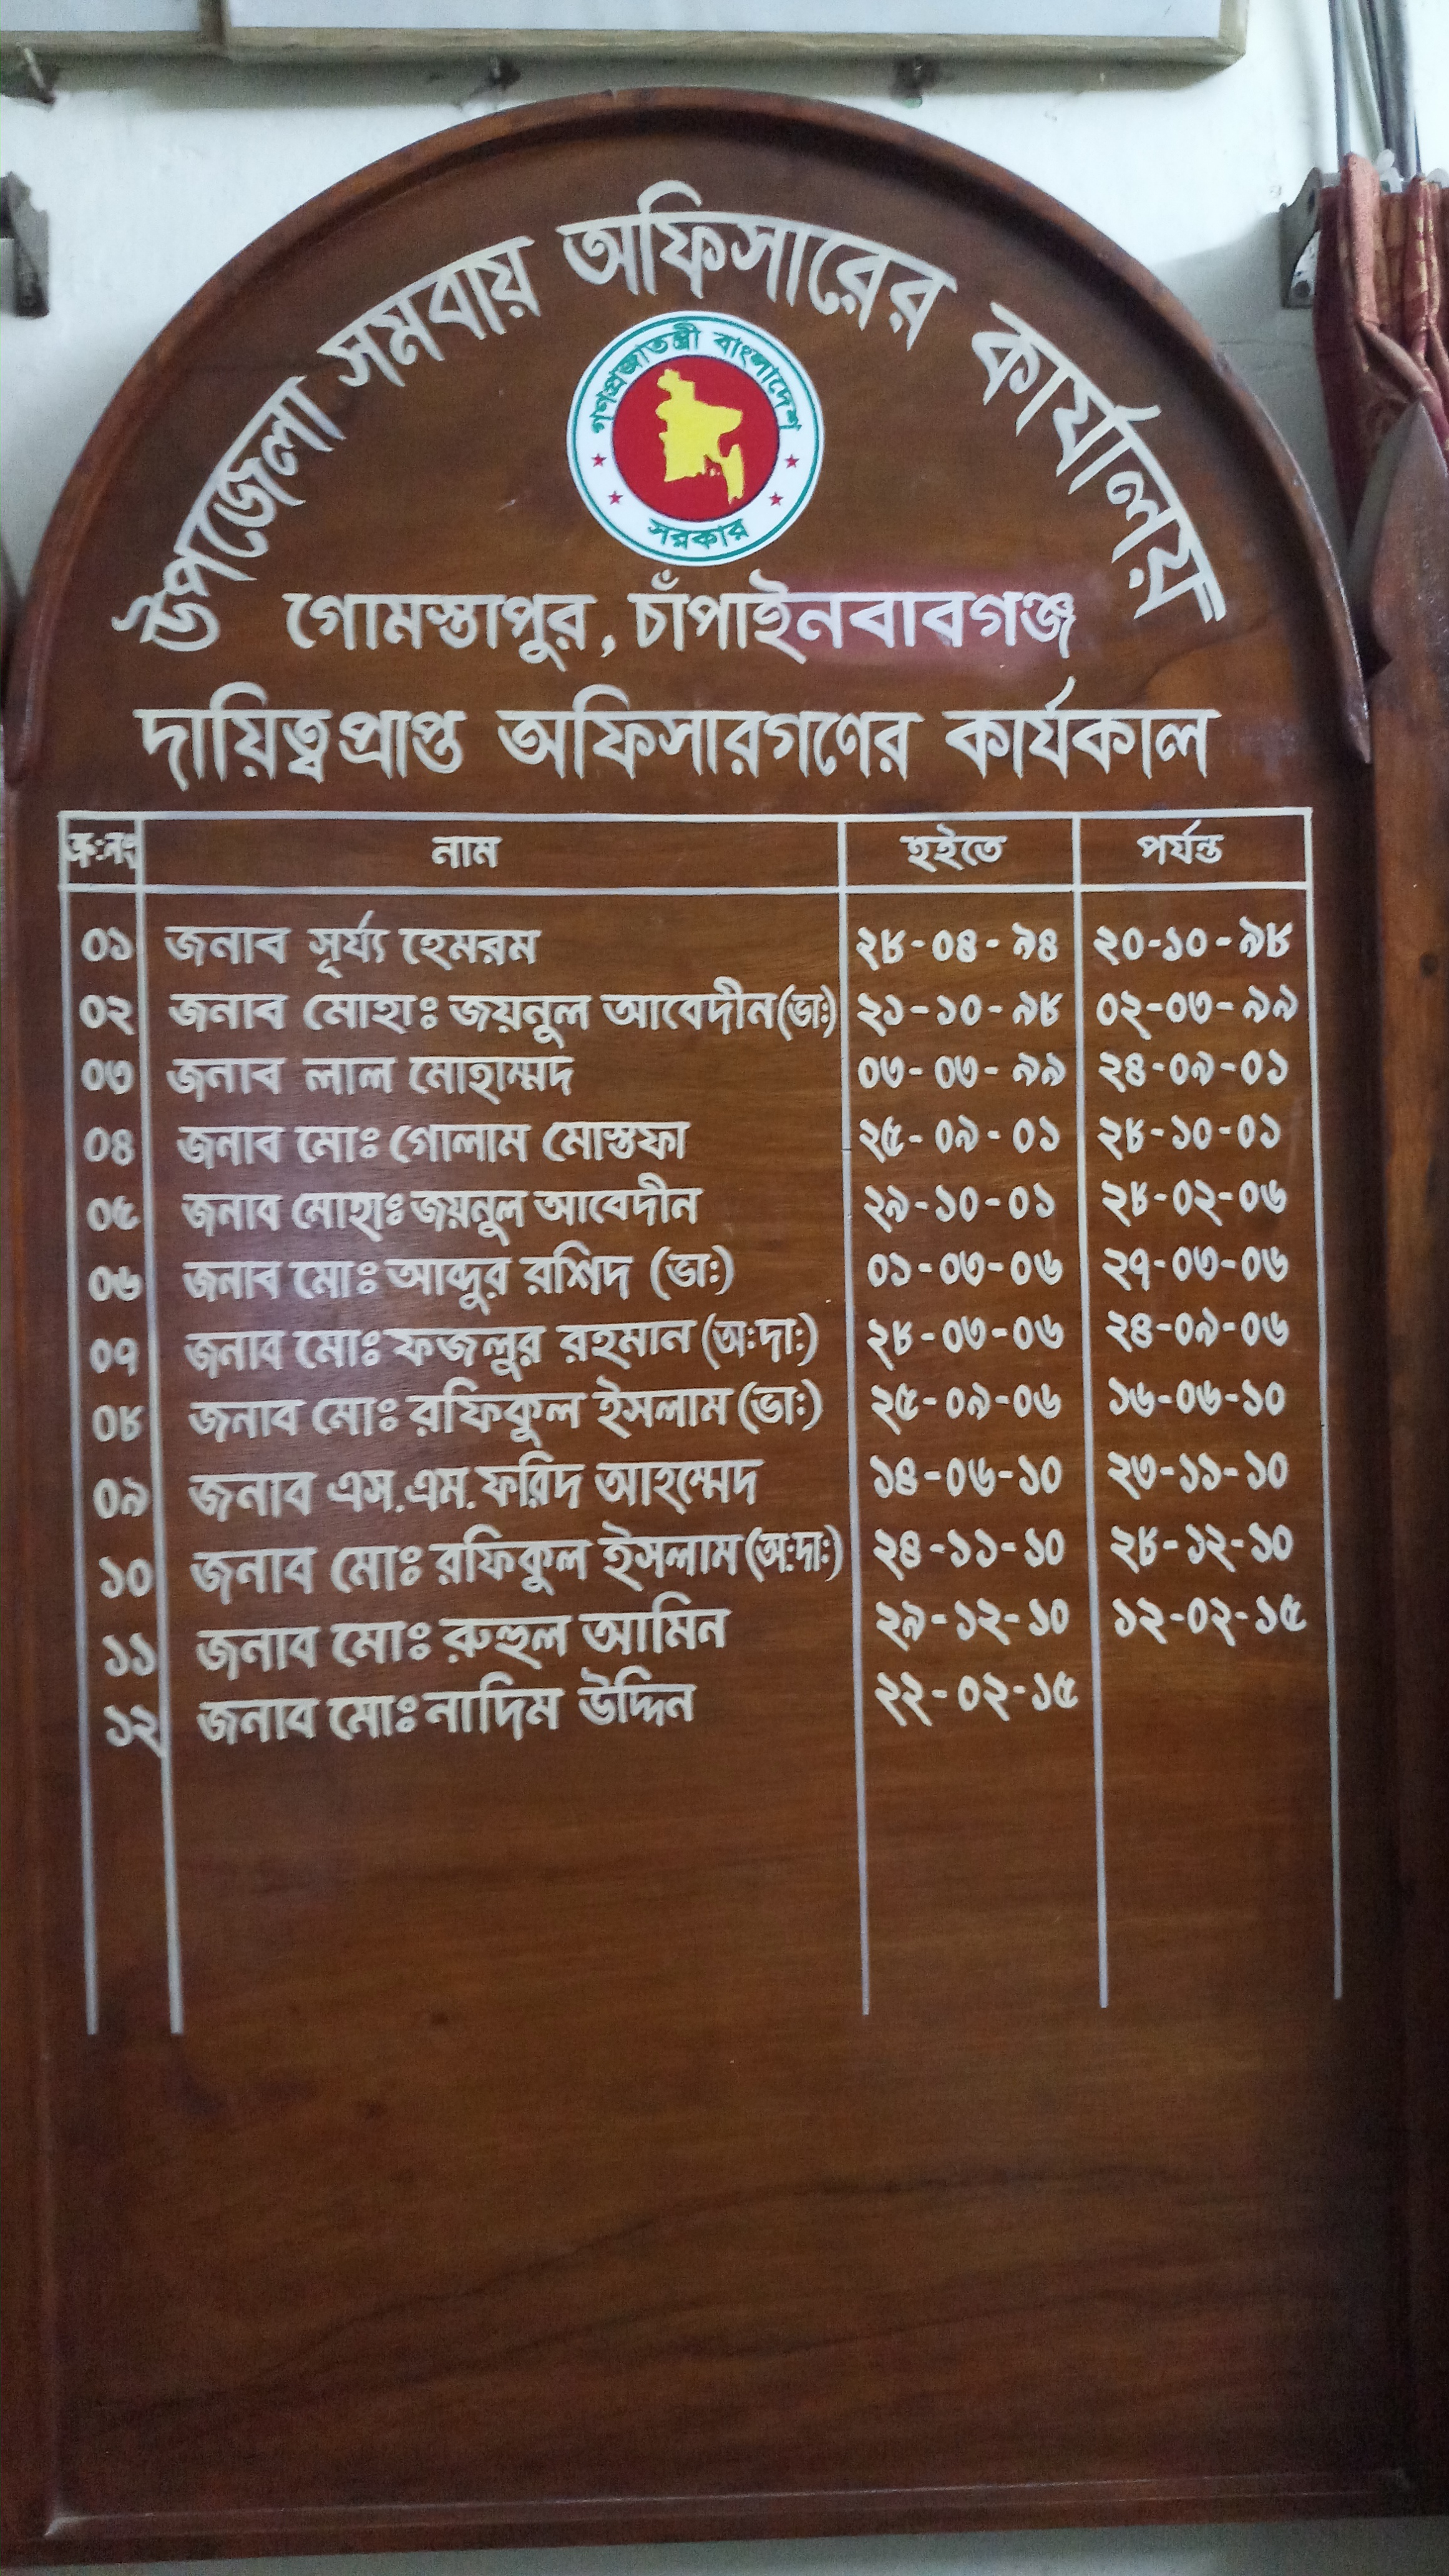 উপজেলা সমবায় অফিসারের কার্যালয়
গণপ্রজাতন্ত্রী বাংলাদেশ
সরকার
গোমস্তাপুর, চাঁপাইনবাবগঞ্জ
দায়িত্বপ্রাপ্ত অফিসারগণের কার্যকাল
ক্র:নং নাম হইতে পর্যন্ত
০১ জনাব সূর্য্য হেমরম ২৮-০৪-৯৪ ২০-১০-৯৮
০২ জনাব মোহাঃ জয়নুল আবেদীন(ভা:) ২১-১০-৯৮ ০২-০৩-৯৯
০৩ জনাব লাল মোহাম্মদ ০৩-০৩-৯৯ ২৪-০৯-০১
০৪ জনাব মোঃ গোলাম মোস্তফা ২৫-০৯-০১ ২৮-১০-০১
০৫ জনাব মোহাঃ জয়নুল আবেদীন ২৯-১০-০১ ২৮-০২-০৬
০৬ জনাব মোঃ আব্দুর রশিদ (ভা:) ০১-০৩-০৬ ২৭-০৩-০৬
০৭ জনাব মোঃ ফজলুর রহমান (অ:দা:) ২৮-০৩-০৬ ২৪-০৯-০৬
০৮ জনাব মোঃ রফিকুল ইসলাম (ভা:) ২৫-০৯-০৬ ১৬-০৬-১০
০৯ জনাব এস.এম. ফরিদ আহম্মেদ ১৪-০৬-১০ ২৩-১১-১০
১০ জনাব মোঃ রফিকুল ইসলাম (অ:দা:) ২৪-১১-১০ ২৮-১২-১০
১১ জনাব মোঃ রুহুল আমিন ২৯-১২-১০ ১২-০২-১৫
১২ জনাব মোঃ নাদিম উদ্দিন ২২-০২-১৫